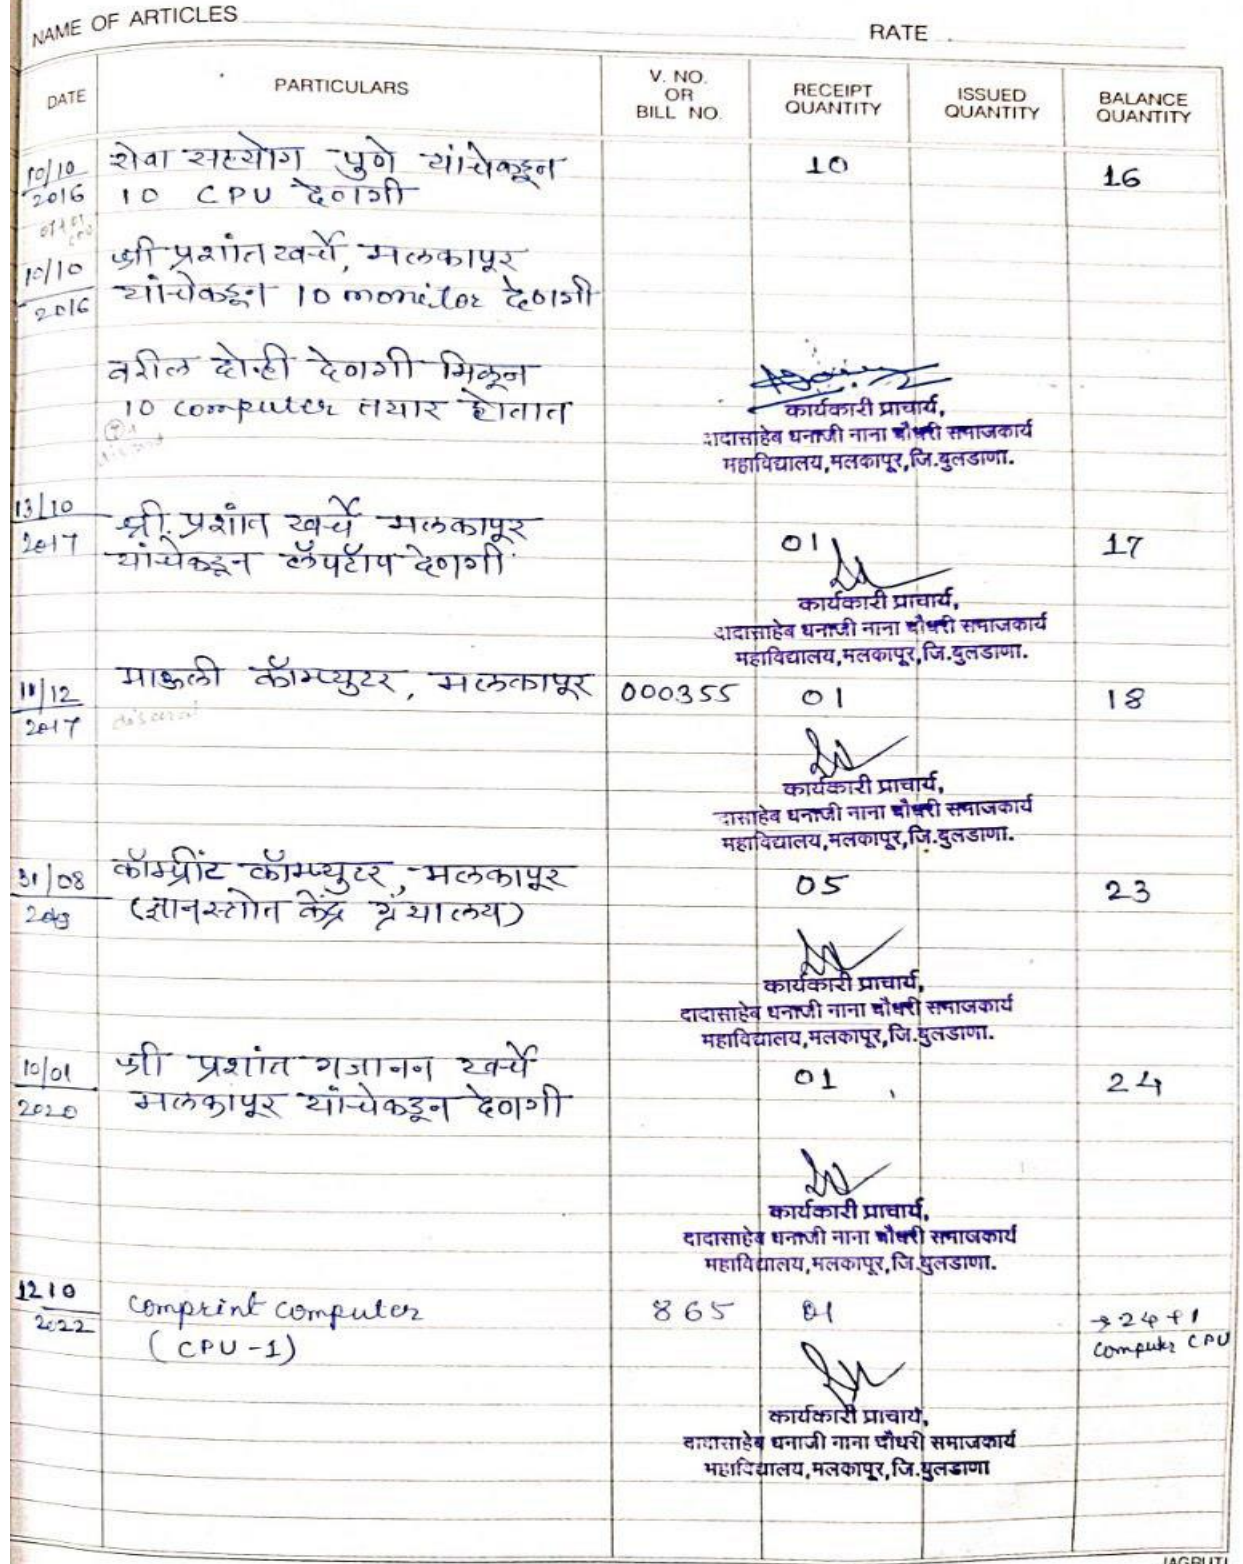 NAME OF ARTICLES
RATE
DATE
PARTICULARS
V. NO.
OR
BILL NO.
RECEIPT
QUANTITY
ISSUED
QUANTITY
BALANCE
QUANTITY
10/10
2016
सेवा सहयोग पुणे यांचेकडून
10 CPU देणगी
10
16
10/10
2016
श्री प्रशांत खर्चे, मलकापूर
यांचेकडून 10 monitor देणगी
वरील दोन्ही देणगी मिळून
10 computer तयार होतात
कार्यकारी प्राचार्य,
दादासाहेब धनाजी नाना चौधरी समाजकार्य
महाविद्यालय,मलकापूर,जि.बुलडाणा.
13/10
2017
श्री. प्रशांत खर्चे मलकापूर
यांचेकडून लॅपटॉप देणगी
01
17
कार्यकारी प्राचार्य,
दादासाहेब धनाजी नाना चौधरी समाजकार्य
महाविद्यालय,मलकापूर,जि.बुलडाणा.
11/12
2017
माऊली कॉम्प्युटर, मलकापूर
000355
01
18
कार्यकारी प्राचार्य,
दासाहेब धनाजी नाना चौधरी समाजकार्य
महाविद्यालय,मलकापूर,जि.बुलडाणा.
31/08
कॉम्प्रींट कॉम्प्युटर, मलकापूर
(ज्ञानस्त्रोत केंद्र ग्रंथालय)
05
23
कार्यकारी प्राचार्य,
दादासाहेब धनाजी नाना चौधरी समाजकार्य
महाविद्यालय,मलकापूर,जि.बुलडाणा.
10/01
2020
श्री प्रशांत गजानन खर्चे
मलकापूर यांचेकडून देणगी
01
24
कार्यकारी प्राचार्य,
दादासाहेब धनाजी नाना चौधरी समाजकार्य
महाविद्यालय,मलकापूर,जि.बुलडाणा.
1210
2022
comprint computer
(CPU-1)
865
01
→ 24+1
computer CPU
कार्यकारी प्राचार्य,
दादासाहेब धनाजी नाना चौधरी समाजकार्य
महाविद्यालय,मलकापूर,जि.बुलडाणा
JAGRUTI